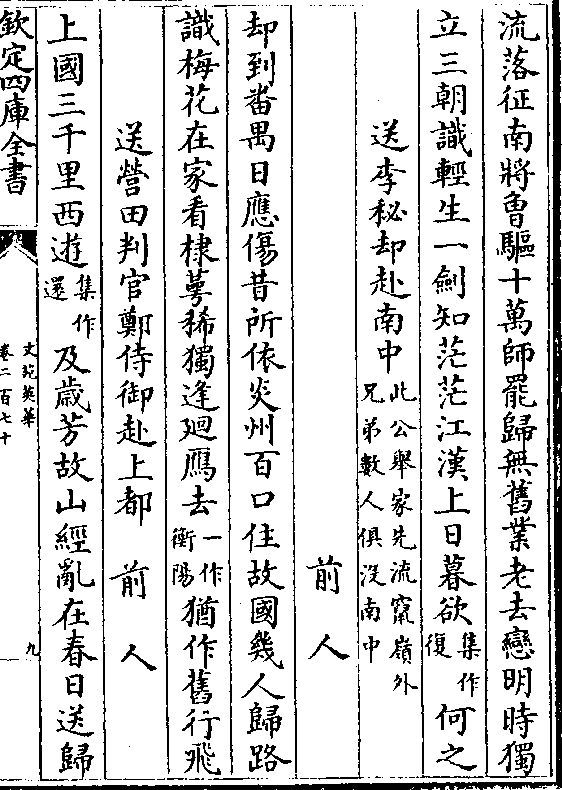 流落征南將曽驅十萬師罷歸無舊業老去戀明時獨
立三朝識輕生一劍知茫茫江漢上日暮欲集作復何之
送李秘却赴南中此公舉家先流竄嶺外兄弟數人俱没南中
前人
却到番禺日應傷昔所依炎州百口住故國幾人歸路
識梅花在家看棣萼稀獨逢廻鴈去一作衡陽猶作舊行飛
送營田判官鄭侍御赴上都 前人
上國三千里西逰集作還及歳芳故山經亂在春日送歸
欽定四庫全書
文苑英華
卷二百七十
九